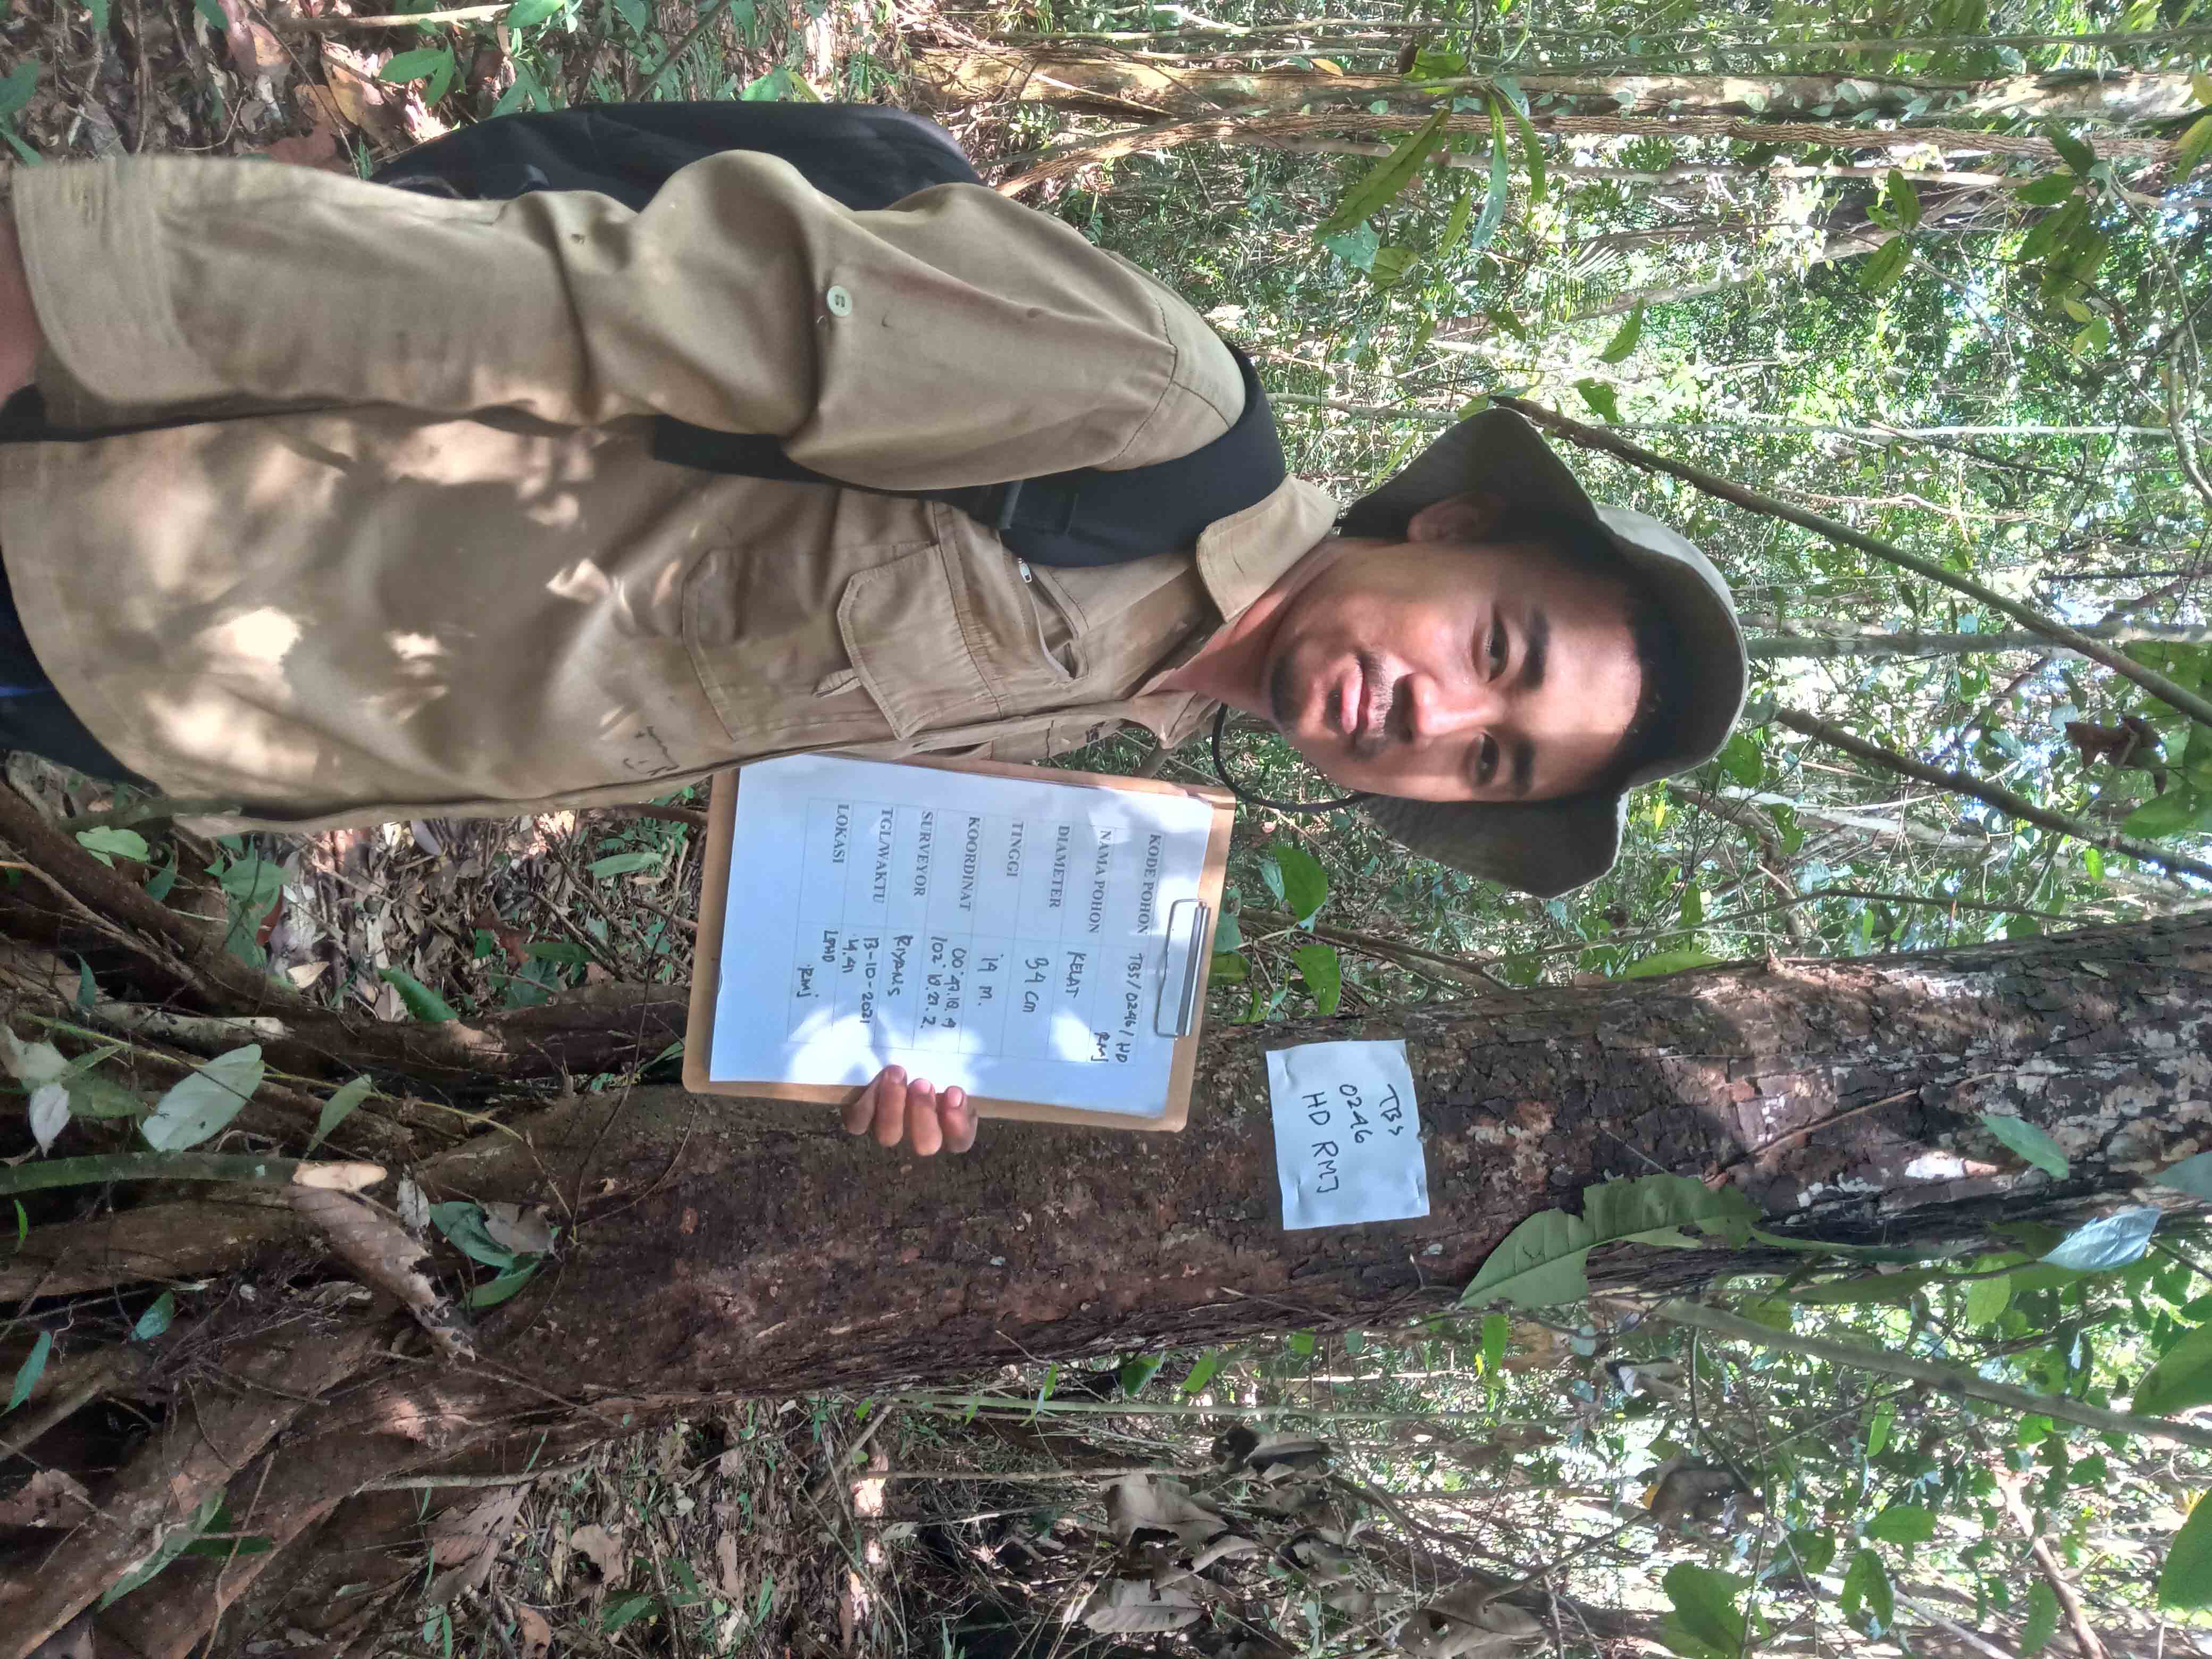 TBS
0246
HD RMJ
KODE POHON TBS/0246/HD
RMJ
NAMA POHON KELAT
DIAMETER 34 cm
TINGGI 14 M.
KOORDINAT
SURVEYOR RIYANS
TGL/WAKTU 13-10-2021
14.41
LOKASI LPHD
RMJ